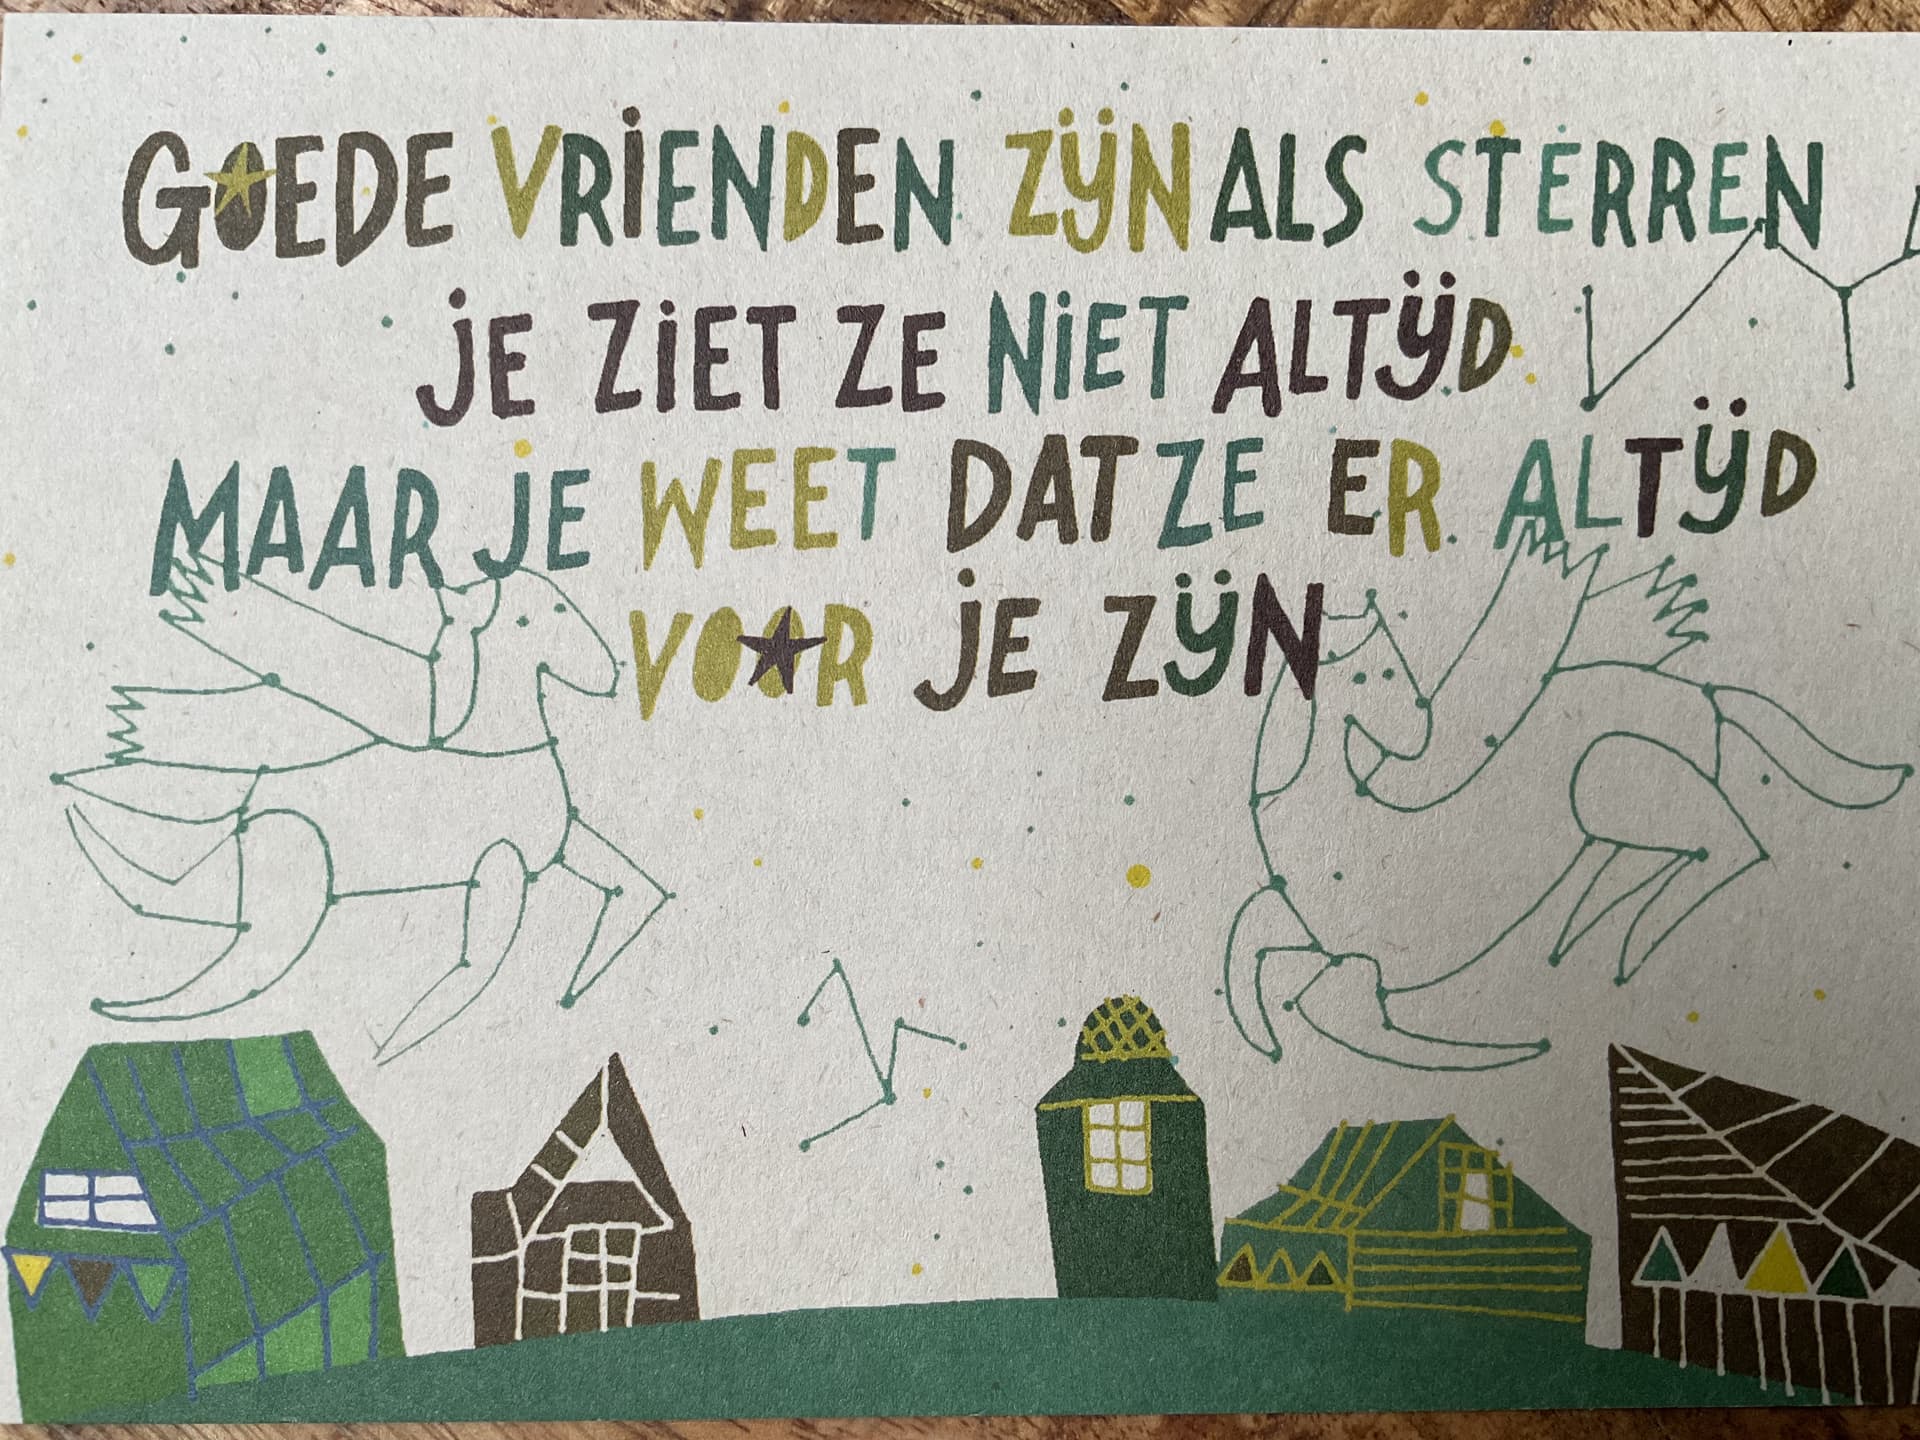 GOEDE VRIENDEN ZIJN ALS STERREN
JE ZIET ZE NIET ALTIJD
MAAR JE WEET DAT ZE ER ALTIJD
VOOR JE ZIJN